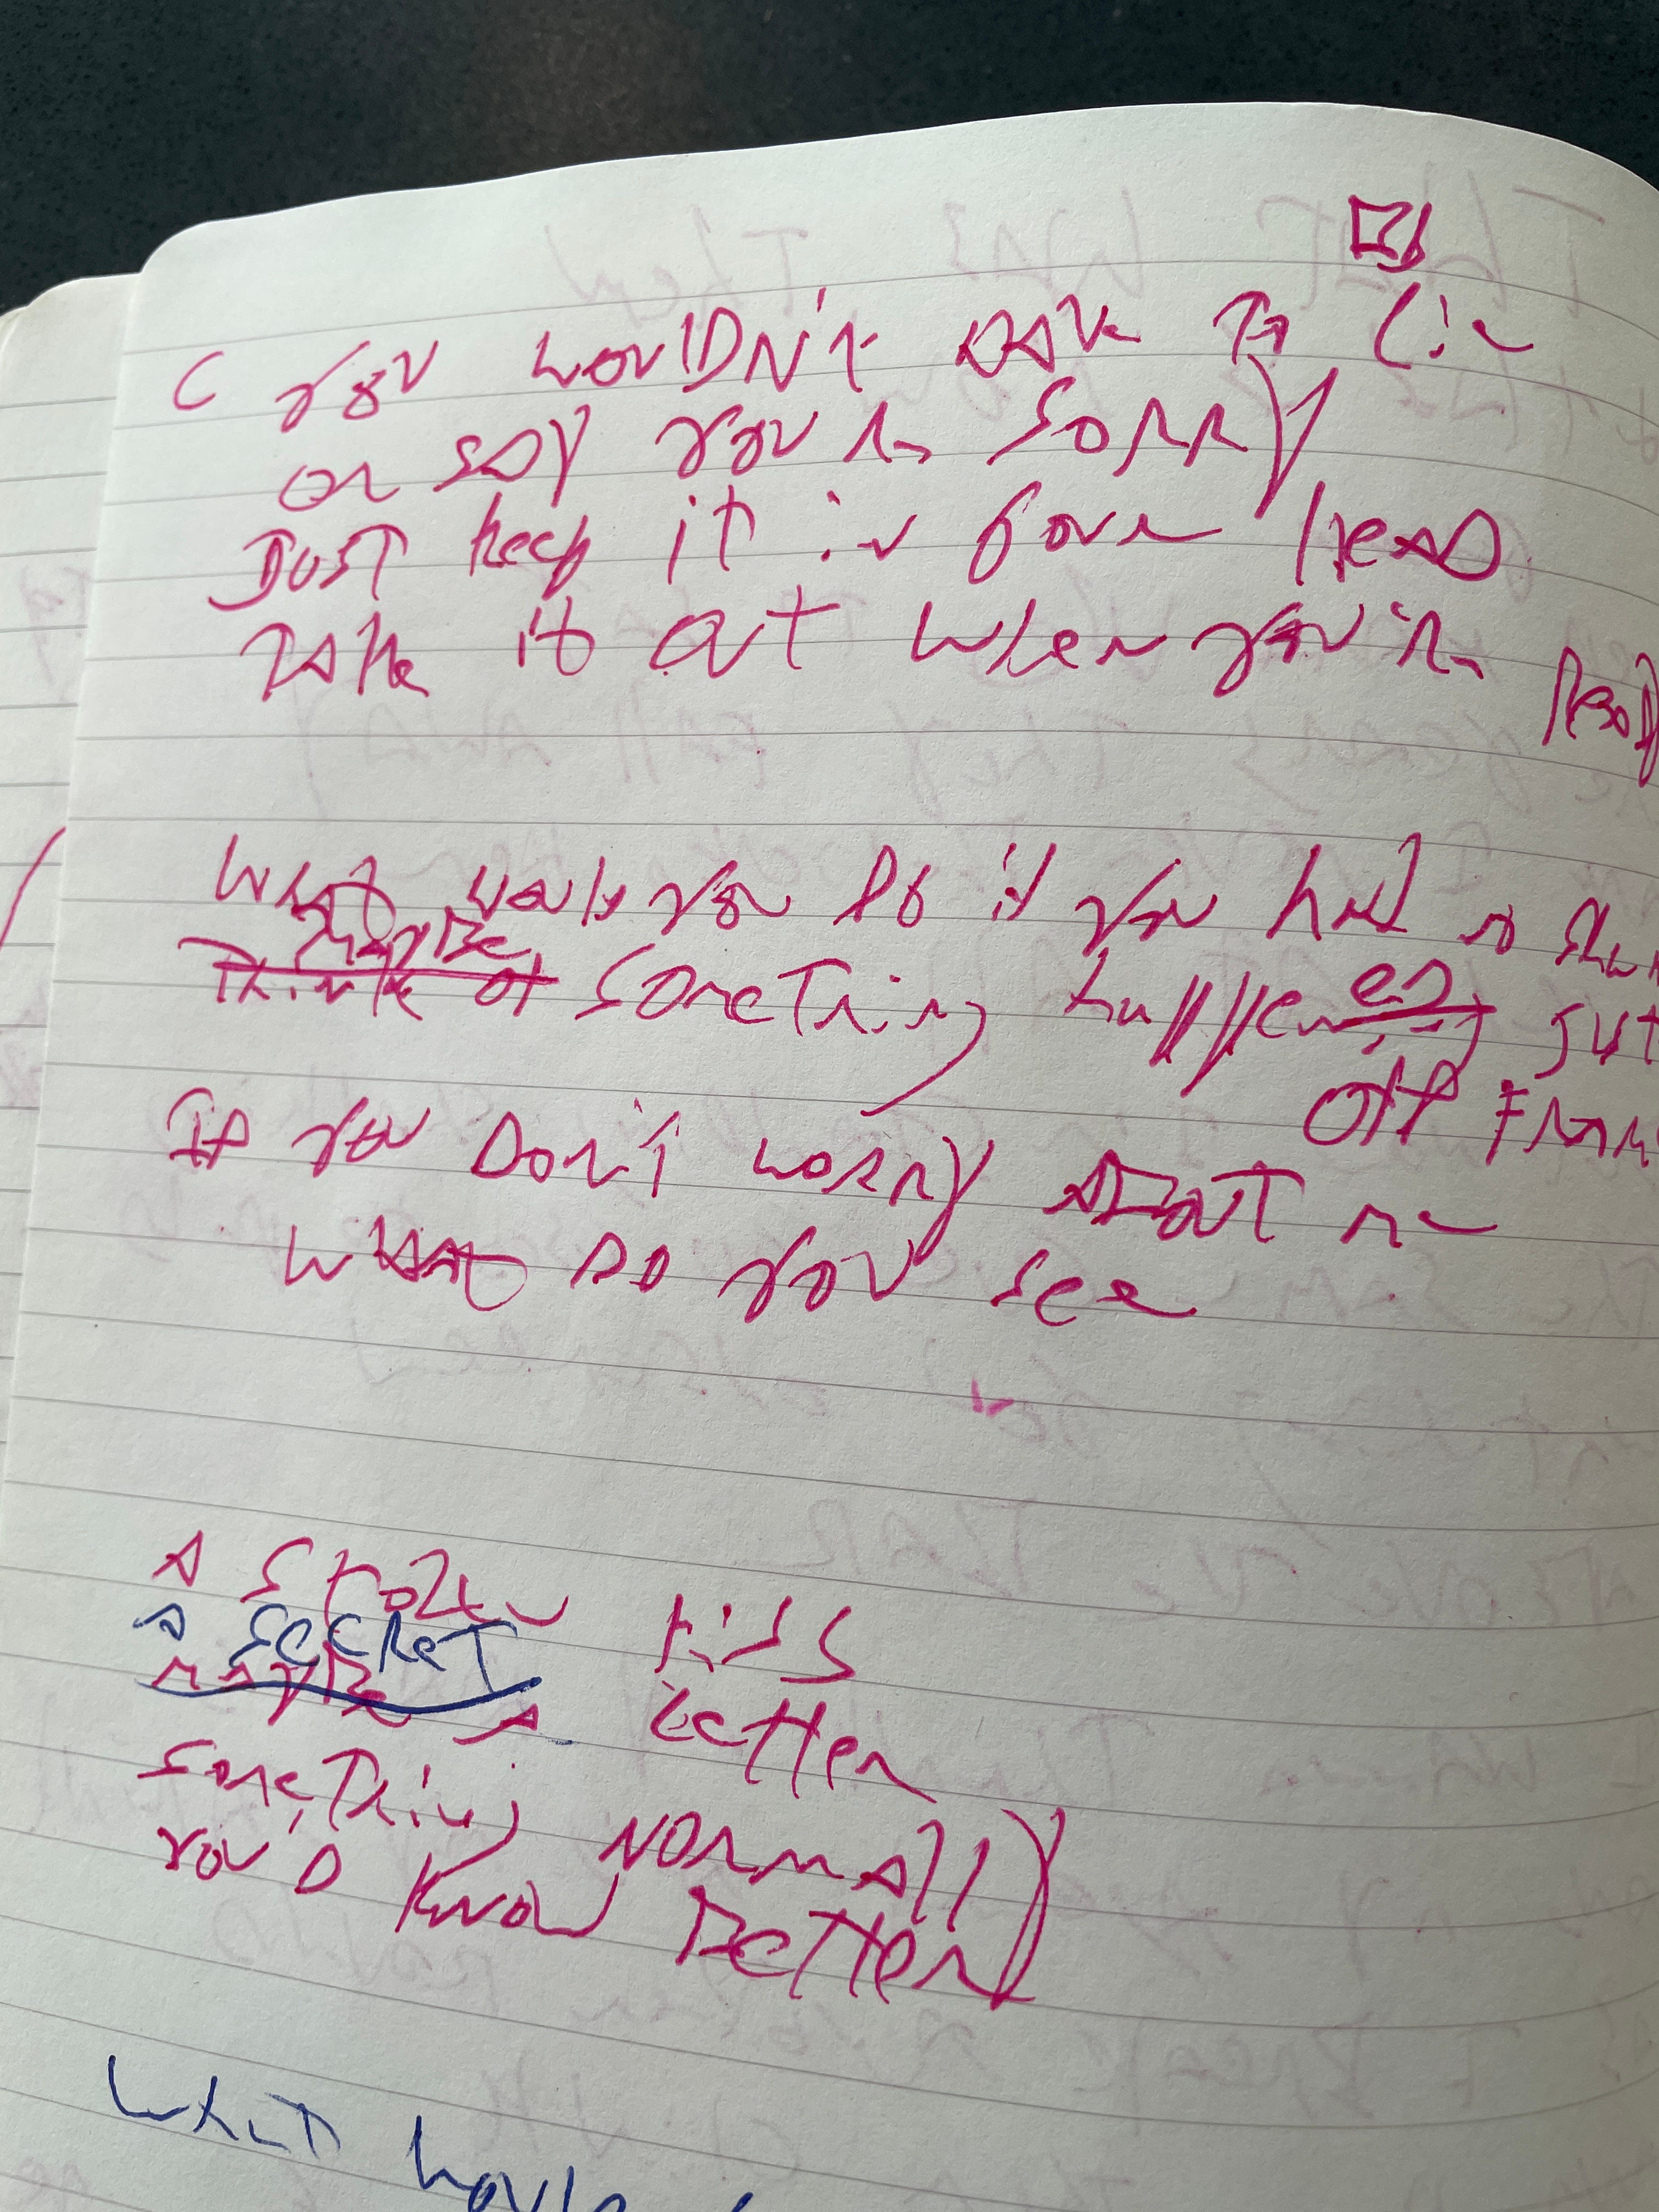 C You wouldn't ask to lie
or say you're sorry
Just keep it in your head
Take it out when you're read
What would you do if you had a
maybe
Think of something happen ed just
off fram
If you Don't worry about me
What do you see
A Stolen kiss
a secret
maybe a letter
something normally
you'd know better
What would